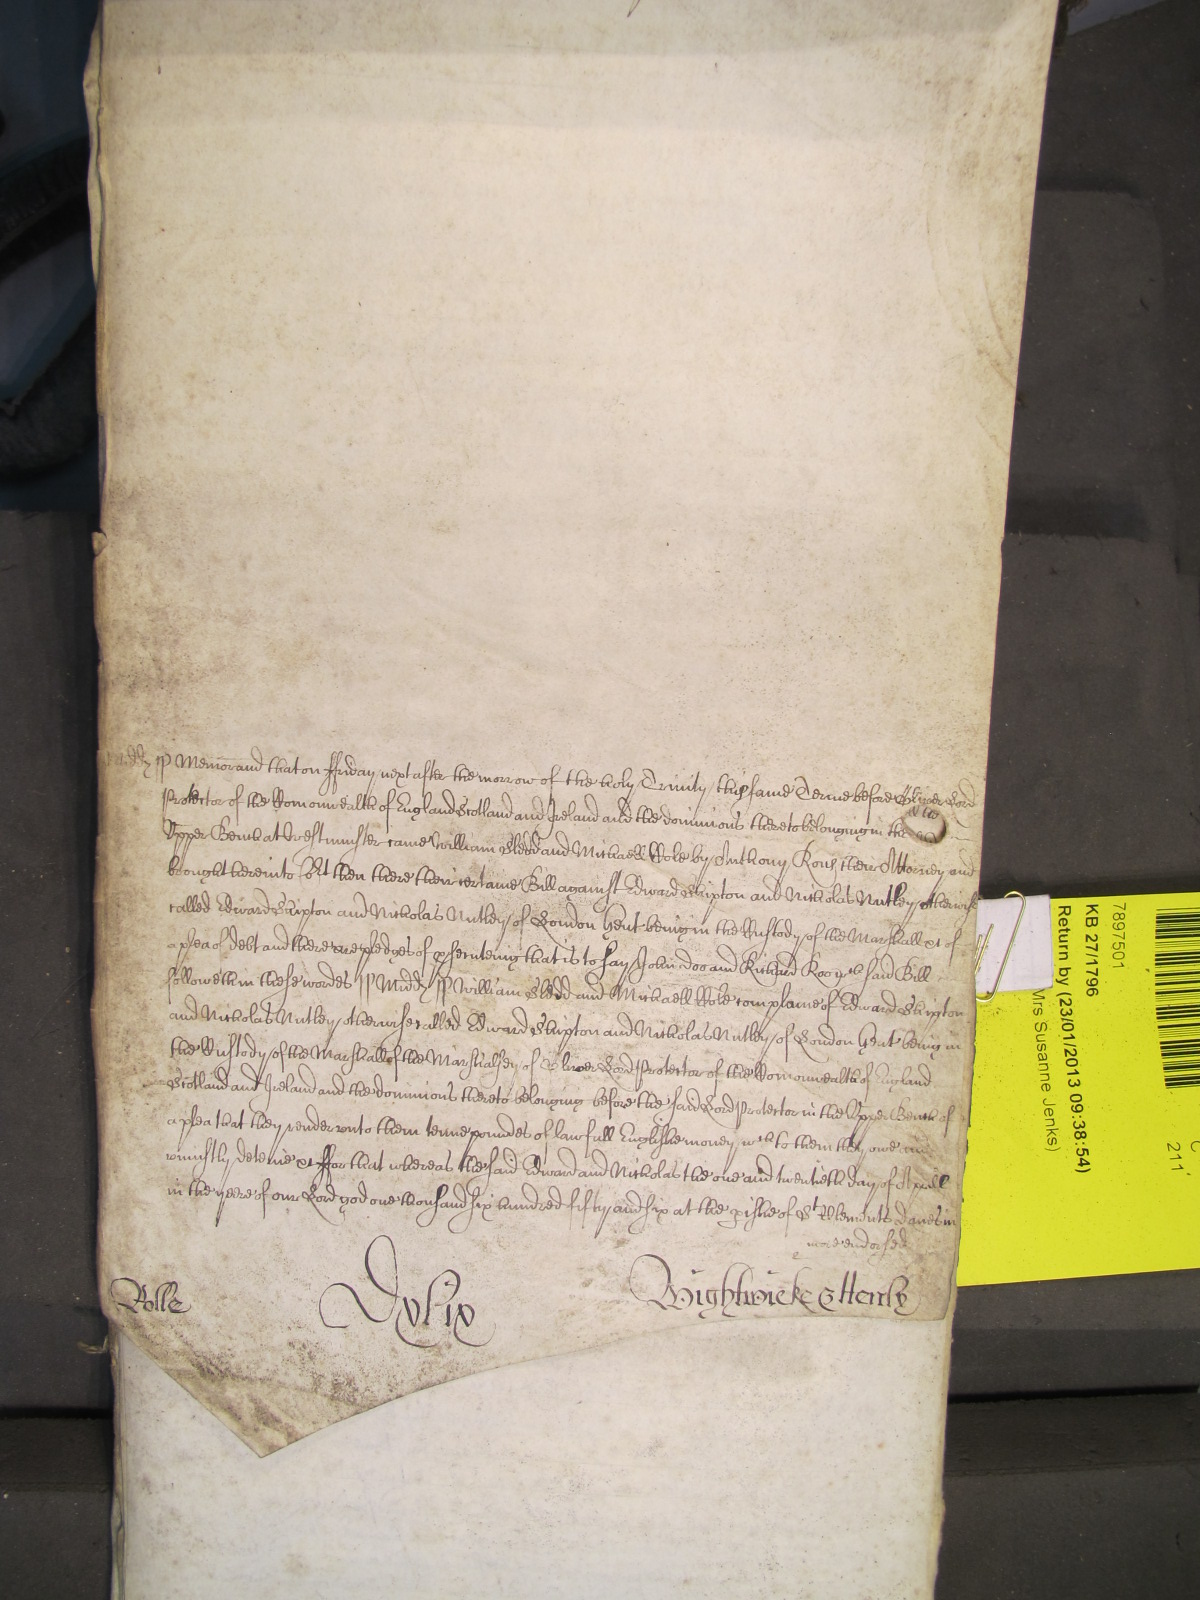 Memorand that on ffriday next after the morrow of the holy Trinity this same Terme before Oliver Lord
Protector of the Comonwealth of England Scotland and Ireland and the dominions thereto belonging in the
Upper Bench at Westminster came William Sledd and Michaell Hole by Anthony Rous their Attorney and
brought here into Ct then there their certaine Bill against Edward Skipton and Nicholas Nutley otherwise
called Edward Skipton and Nicholas Nutley of London Gent being in the Custody of the Marshall &c of
a plea of debt and there are pledges of psecuteing that is to say John Doo and Richard Roo wch said Bill
followeth in these wordes ss Midd ss William Sledd and Michaell Hole complaine of Edward Skipton
and Nicholas Nutley otherwise called Edward Skipton and Nicholas Nutley of London Gent being in
the Custody of the Marshall of the Marshalsey of Oliver Lord Protector of the Comonwealth of England
Scotland and Ireland and the dominions thereto belonging before the said Lord Protector in the Upper Bench of
a plea that they render unto them tenne poundes of lawfull Englishe money wch to them they owe and
uniustly deteine &c ffor that whereas the said Edward and Nicholas the one and twentieth day of Aprill
in the yeere of our Lord god one thousand six hundred fifty and six at the pishe of St Clements Danes in
more endorsed
Rolle Dxlix Wightwicke & Henly
7897501
KB 27/1796
Return by (23/01/2013 09:38:54)
Mrs Susanne Jenks)
211